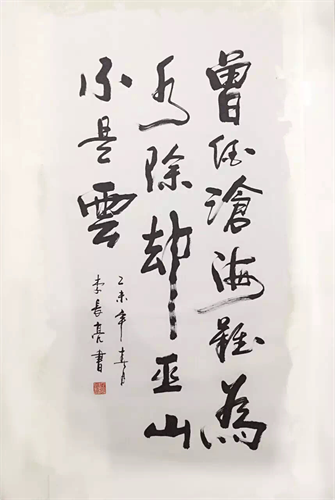 曾經滄海難為
水除却巫山
不是雲
乙未年春月
李長亮書